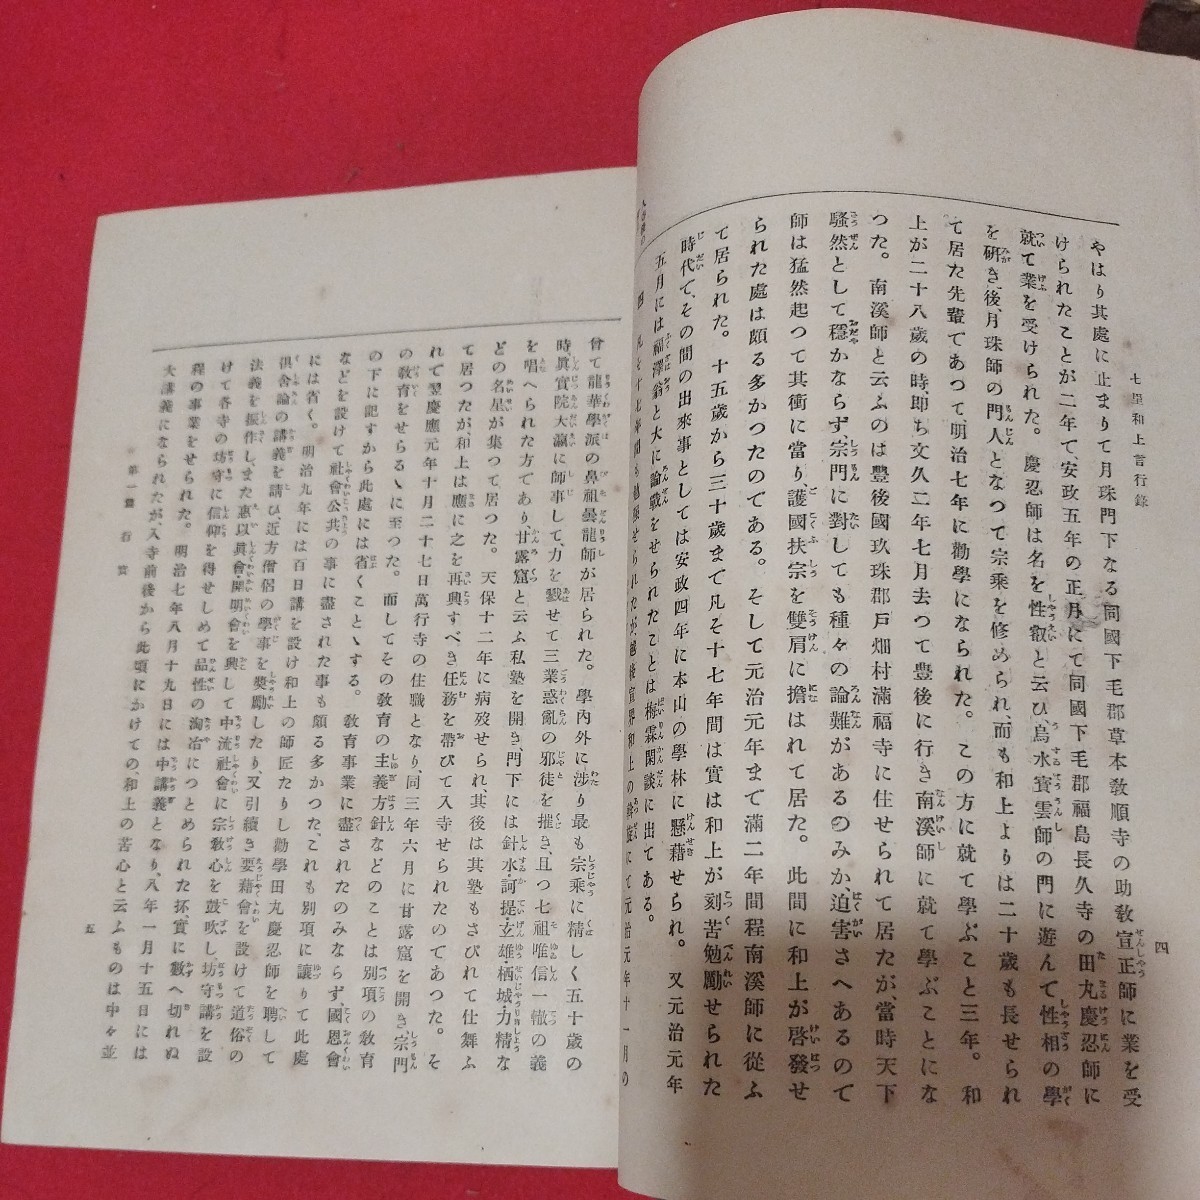 七里和上言行錄
四
やはり其處に止まりて月珠門下なる同國下毛郡草本敎順寺の助敎宣正師に業を受
けられたことが二年で、安政五年の正月にて同國下毛郡福島長久寺の田丸慶忍師に
就て業を受けられた。慶忍師は名を性叡と云ひ、烏水寳雲師の門に遊んで性相の學
を硏き、後、月珠師の門人となつて宗乘を修められ、而も和上よりは二十歲も長せられ
て居た先輩であつて、明治七年に勸學になられた。この方に就て學ぶこと三年。和
上が二十八歲の時、卽ち文久二年七月去つて豐後に行き南溪師に就て學ぶことにな
つた。南溪師と云ふのは豐後國玖珠郡戸畑村滿福寺に住せられて居たが、當時天下
騷然として穩かならず、宗門に對しても種々の論難があるのみか、迫害さへあるので
師は猛然起つて其衝に當り、護國扶宗を雙肩に擔はれて居た。此間に和上が啓發せ
られた處は頗る多かつたのである。そして元治元年まで滿二年間程南溪師に從ふ
て居られた。十五歲から三十歲まで凡そ十七年間は實は和上が刻苦勉勵せられた
時代で、その間の出來事としては安政四年に本山の學林に懸藉せられ。又元治元年
五月には福澤翁と大に論戰をせられたことは梅霖閑談に出てある。
曾て龍華學派の鼻祖曇龍師が居られた。學內外に涉り最も宗乘に精しく五十歲の
時眞實院大瀛に師事して、力を戮せて三業惑亂の邪徒を摧き、且つ七祖唯信一轍の義
を唱へられた方であり、甘露窟と云ふ私塾を開き、門下には針水・訶提・玄雄・栖城・力精な
どの名星が集つて居つた。天保十二年に病歿せられ、其後は其塾もさびれて仕舞ふ
て居つたが和上は應に之を再興すべき任務を帶びて入寺せられたのであつた。そ
れで翌慶應元年十月二十七日萬行寺の住職となり、同三年六月に甘露窟を開き宗門
の敎育をせらるゝに至つた。而してその敎育の主義方針などのことは別項の敎育
の下に記すから此處には省くことゝする。敎育事業に盡されたのみならず、國恩會
などを設けて社會公共の事に盡された事も頗る多かつた、これも別項に讓りて此處
には省く。明治九年には百日講を設け和上の師匠たりし勸學田丸慶忍師を聘して
俱舍論の講義を請ひ、近方僧侶の學事を奬勵したり、又引續き要藉會を設けて道俗の
法義を振作し、また惠以眞會・開明會を興して中流社會に宗敎心を鼓吹し、坊守講を設
けて各寺の坊守に信仰を得せしめて品性の淘冶につとめられた抔、實に數へ切れぬ
程の事業をせられた。明治七年八月十九日には中講義となり、八年一月十五日には
大講義になられたが、入寺前後から此頃にかけての、和上の苦心と云ふものは中々並
第一篇 行實
五